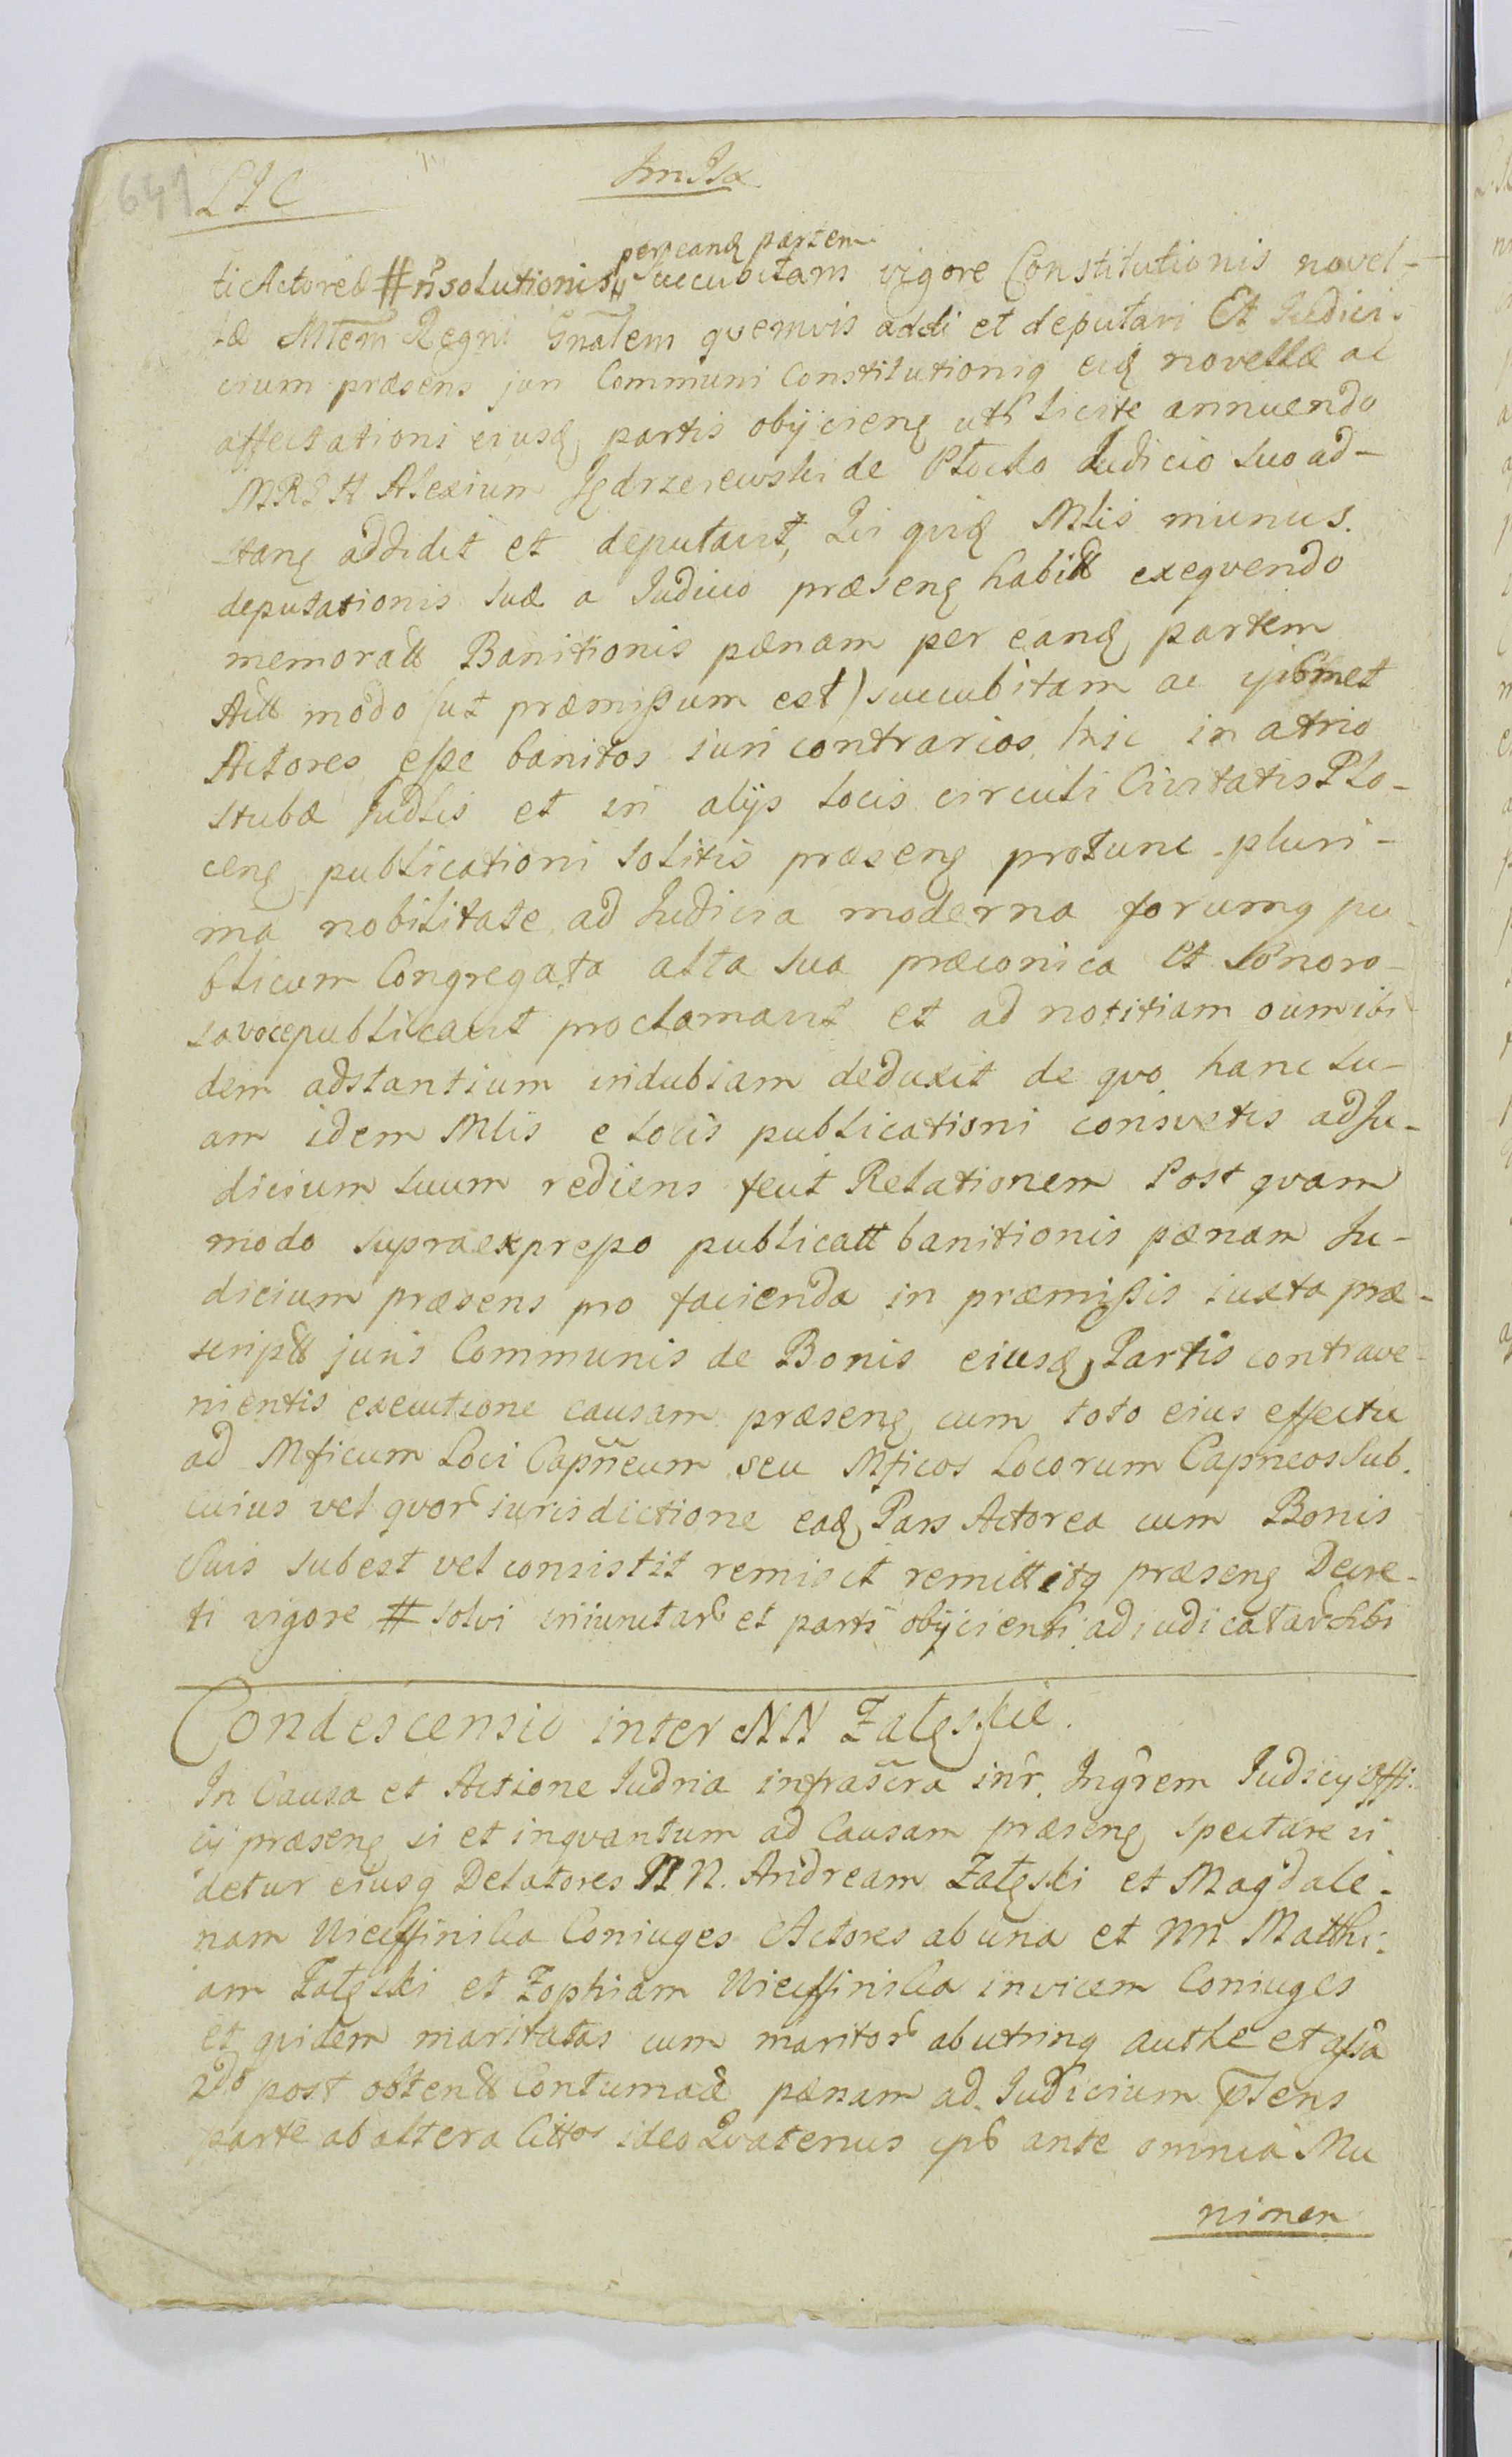 641 LIC
per eand partem
ti Actoreæ # nsolutionis succubitam vigore Constitutionis novel-
læ Mlem Regni Gnalem quemvis addi et deputari Et Iudici-
cium præsens juri Communi Constitutioniq eid novellæ ac
affectationi eiusd partis obijcienę uti licite annuendo
MRIH Alexium Jędrzeiewski de Płocko Iudicio suo ad-
stanę addidit et deputavit, Qui quid Mlis munus
deputationis suæ a Iudicio præsenę habitt exequendo
memoratt Banitionis pænam per eand partem
Actt modo (ut præmissum est) succubitam ac ipsosmet
Actores esse banitos iuri contrarios hic in atrio
stubæ Iudlis et in alijs locis circuli Civitatis Plo-
cenę publicationi solitis præsenę protunc pluri-
ma nobilitate ad Iudicia moderna forumq pu-
blicum Congregata alta sua præconica et Sonoro-
sa voce publicavit proclamavit et ad notitiam oium ibi-
dem adstantium indubiam deduxit de quo hanc su-
am idem Mlis e locis publicationi consvetis ad Ju-
dicium suum rediens fecit Relationem Post quam
modo supraexpresso publicatt banitionis pænam Ju-
dicium præsens pro facienda in præmissis iuxta præ-
scriptt juris Communis de Bonis eiusd Partis contrave-
nientis executione causam præsenę cum toto eius effectu
ad Mficum Loci Capneum seu Mficos Locorum Capneos sub
cuius vel quor iurisdictione ead Pars Actorea cum Bonis
Suis subest vel consistit remisit remittitq præsenę Decre-
ti vigore # solvi iniunctar et parti obijcienti adiudicatar sibi
Condescensio inter NN Zalęskie.
In Causa et Actione Iudria infrascra inr. Ingrem Iudicij Offi-
cij præsenę si et inquantum ad Causam præsenę spectare vi
detur eiusq Delatores NN. Andream Zalęski et Magdale-
nam Nicessinska Coniuges Actores ab una et NN Matthi-
am Zalęski et Zophiam Nicessinska invicem Coniuges
et quidem maritatas cum maritor ab utrinq authe et assa
2do post obtentt Contumaæ pænam ad Iudicium Psens
parte ab altera Cittos ideo Quatenus ipsi ante omnia Mu
nimen